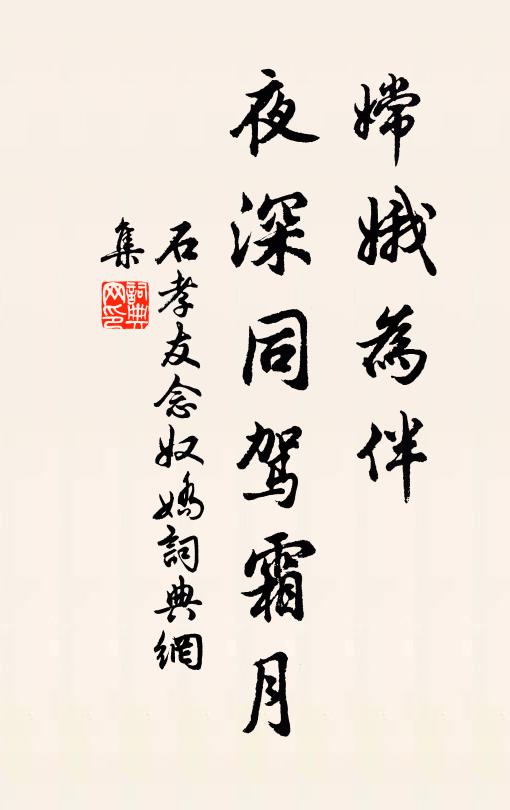 嫦娥為伴
夜深同駕霜月
石孝友念奴嬌詞典網
集
詞典
网印